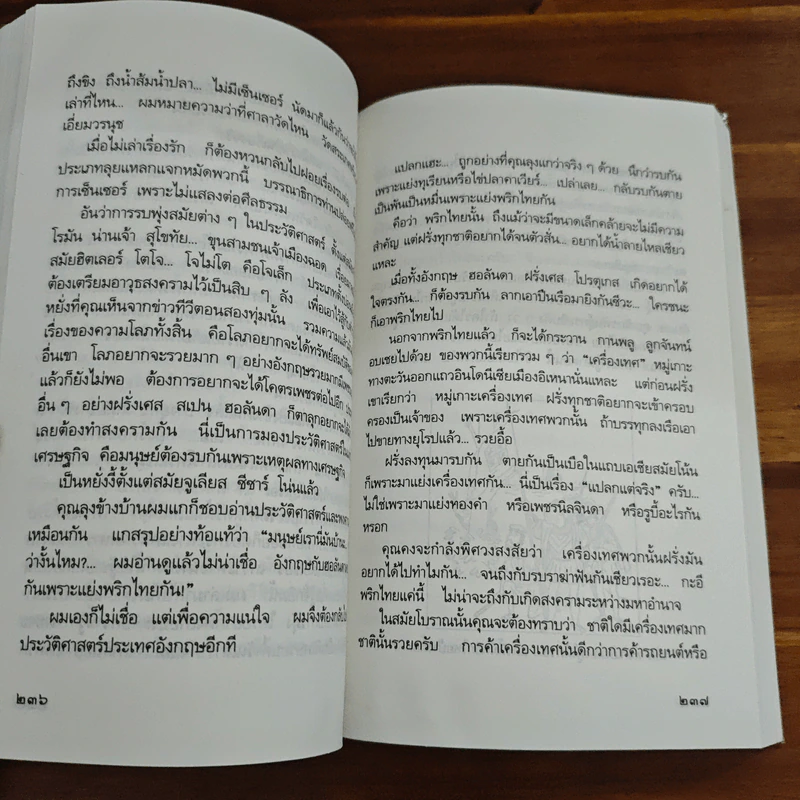 ถึงขิง ถึงน้ำส้มน้ำปลา... ไม่มีเซ็นเซอร์ นัดมาก็แล้วกัน
เล่าที่ไหน... ผมหมายความว่าที่ศาลาวัดไหน วัดสระ
เอี่ยมวรนุช
เมื่อไม่เล่าเรื่องรัก ก็ต้องหวนกลับไปฝอยเรื่องรบพุ่ง
ประเภทลุยแหลกแจกหมัดพวกนี้ บรรณาธิการท่านปล่อย
การเซ็นเซอร์ เพราะไม่แสลงต่อศีลธรรม
อันว่าการรบพุ่งสมัยต่าง ๆ ในประวัติศาสตร์ ตั้งแต่สมัย
โรมัน น่านเจ้า สุโขทัย... ขุนสามชนเจ้าเมืองฉอด เรื่อย
สมัยฮิตเลอร์ โตโจ... โจไม่โต คือโจเล็ก ประเภท
ต้องเตรียมอาวุธสงครามไว้เป็นสิบ ๆ ลัง เพื่อเอาไว้สู้กับ
หยั่งที่คุณเห็นจากข่าวทีวีตอนสองทุ่มนั้น รวมความแล้ว
เรื่องของความโลภทั้งสิ้น คือโลภอยากจะได้ทรัพย์สมบัติ
อื่นเขา โลภอยากจะรวยมาก ๆ อย่างอังกฤษรวยมาก
แล้วก็ยังไม่พอ ต้องการอยากจะได้โคตรเพชรต่อไปอีก
อื่น ๆ อย่างฝรั่งเศส สเปน ฮอลันดา ก็ตาลุกอยากจะได้
เลยต้องทำสงครามกัน นี่เป็นการมองประวัติศาสตร์ใน
เศรษฐกิจ คือมนุษย์ต้องรบกันเพราะเหตุผลทางเศรษฐกิจ
เป็นหยั่งงี้ตั้งแต่สมัยจูเลียส ซีซาร์ โน่นแล้ว
คุณลุงข้างบ้านผมแกก็ชอบอ่านประวัติศาสตร์และ
เหมือนกัน แกสรุปอย่างท้อแท้ว่า “มนุษย์เรานี่มันบ้านะ...
ว่างั้นไหม?... ผมอ่านดูแล้วไม่น่าเชื่อ อังกฤษกับฮอลันดา
กันเพราะแย่งพริกไทยกัน!”
ผมเองก็ไม่เชื่อ แต่เพื่อความแน่ใจ ผมจึงต้องกลับไป
ประวัติศาสตร์ประเทศอังกฤษอีกที
๒๓๖
แปลกแฮะ... ถูกอย่างที่คุณลุงแกว่าจริง ๆ ด้วย นึกว่ารบกัน
เพราะแย่งทุเรียนหรือไข่ปลาคาเวียร์... เปล่าเลย... กลับรบกันตาย
เป็นพันเป็นหมื่นเพราะแย่งพริกไทยกัน
คือว่า พริกไทยนั้น ถึงแม้ว่าจะมีขนาดเล็กคล้ายจะไม่มีความ
สำคัญ แต่ฝรั่งทุกชาติอยากได้จนตัวสั่น... อยากได้น้ำลายไหลเชียว
แหละ
เมื่อทั้งอังกฤษ ฮอลันดา ฝรั่งเศส โปรตุเกส เกิดอยากได้
ใจตรงกัน... ก็ต้องรบกัน ลากเอาปืนเรือมายิงกันซีวะ... ใครชนะ
ก็เอาพริกไทยไป
นอกจากพริกไทยแล้ว ก็จะได้กระวาน กานพลู ลูกจันทน์
อบเชยไปด้วย ของพวกนี้เรียกรวม ๆ ว่า “เครื่องเทศ” หมู่เกาะ
ทางตะวันออกแถวอินโดนีเซียเมืองอิเหนานั่นแหละ แต่ก่อนฝรั่ง
เขาเรียกว่า หมู่เกาะเครื่องเทศ ฝรั่งทุกชาติอยากจะเข้าครอบ
ครองเป็นเจ้าของ เพราะเครื่องเทศพวกนั้น ถ้าบรรทุกลงเรือเอา
ไปขายทางยุโรปแล้ว... รวยอื้อ
ฝรั่งลงทุนมารบกัน ตายกันเป็นเบือในแถบเอเชียสมัยโน้น
ก็เพราะมาแย่งเครื่องเทศกัน... นี่เป็นเรื่อง “แปลกแต่จริง” ครับ...
ไม่ใช่เพราะมาแย่งทองคำ หรือเพชรนิลจินดา หรือรูบี้อะไรกัน
หรอก
คุณคงจะกำลังพิศวงสงสัยว่า เครื่องเทศพวกนั้นฝรั่งมัน
อยากได้ไปทำไมกัน... จนถึงกับรบราฆ่าฟันกันเชียวเรอะ... กะอี
พริกไทยแค่นี้ ไม่น่าจะถึงกับเกิดสงครามระหว่างมหาอำนาจ
ในสมัยโบราณนั้นคุณจะต้องทราบว่า ชาติใดมีเครื่องเทศมาก
ชาตินั้นรวยครับ การค้าเครื่องเทศนั้นดีกว่าการค้ารถยนต์หรือ
๒๓๗